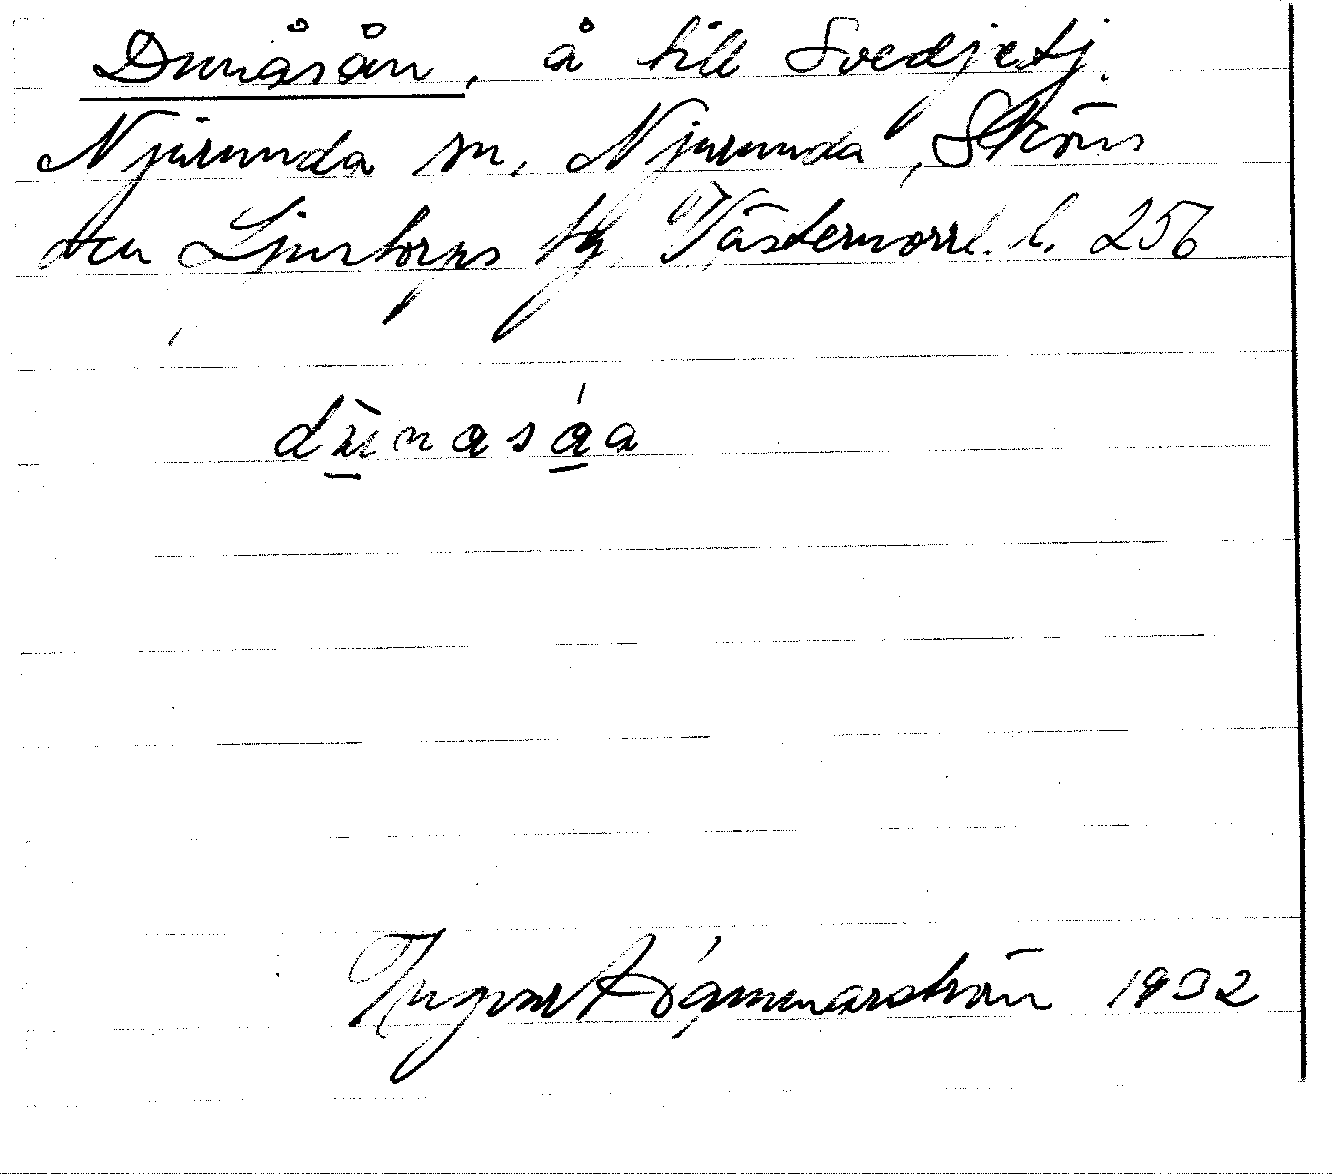 Dunåsån, å till Svedjetj.
Njurunda sn, Njurunda, Sköns
och Ljustorps tg Västernorrl. l. 256
dùnasáa
Ingvar Hämmarström 1932